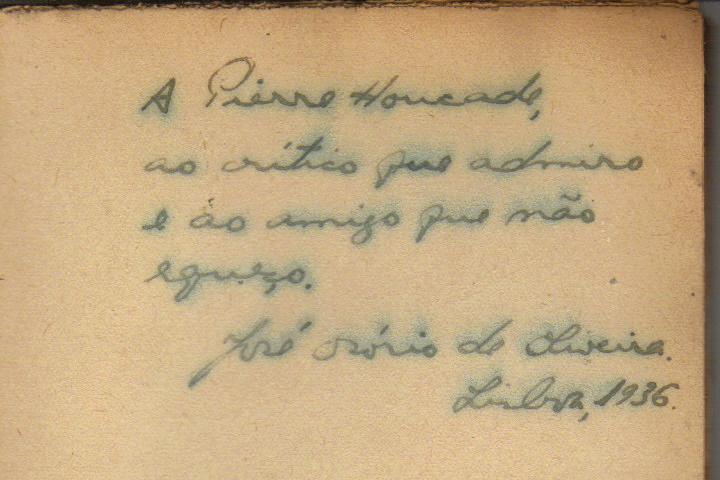 A Pierre Houcade,
ao crítico que admiro
e ao amigo que não
esqueço.
José Osório de Oliveira.
Lisboa, 1936.